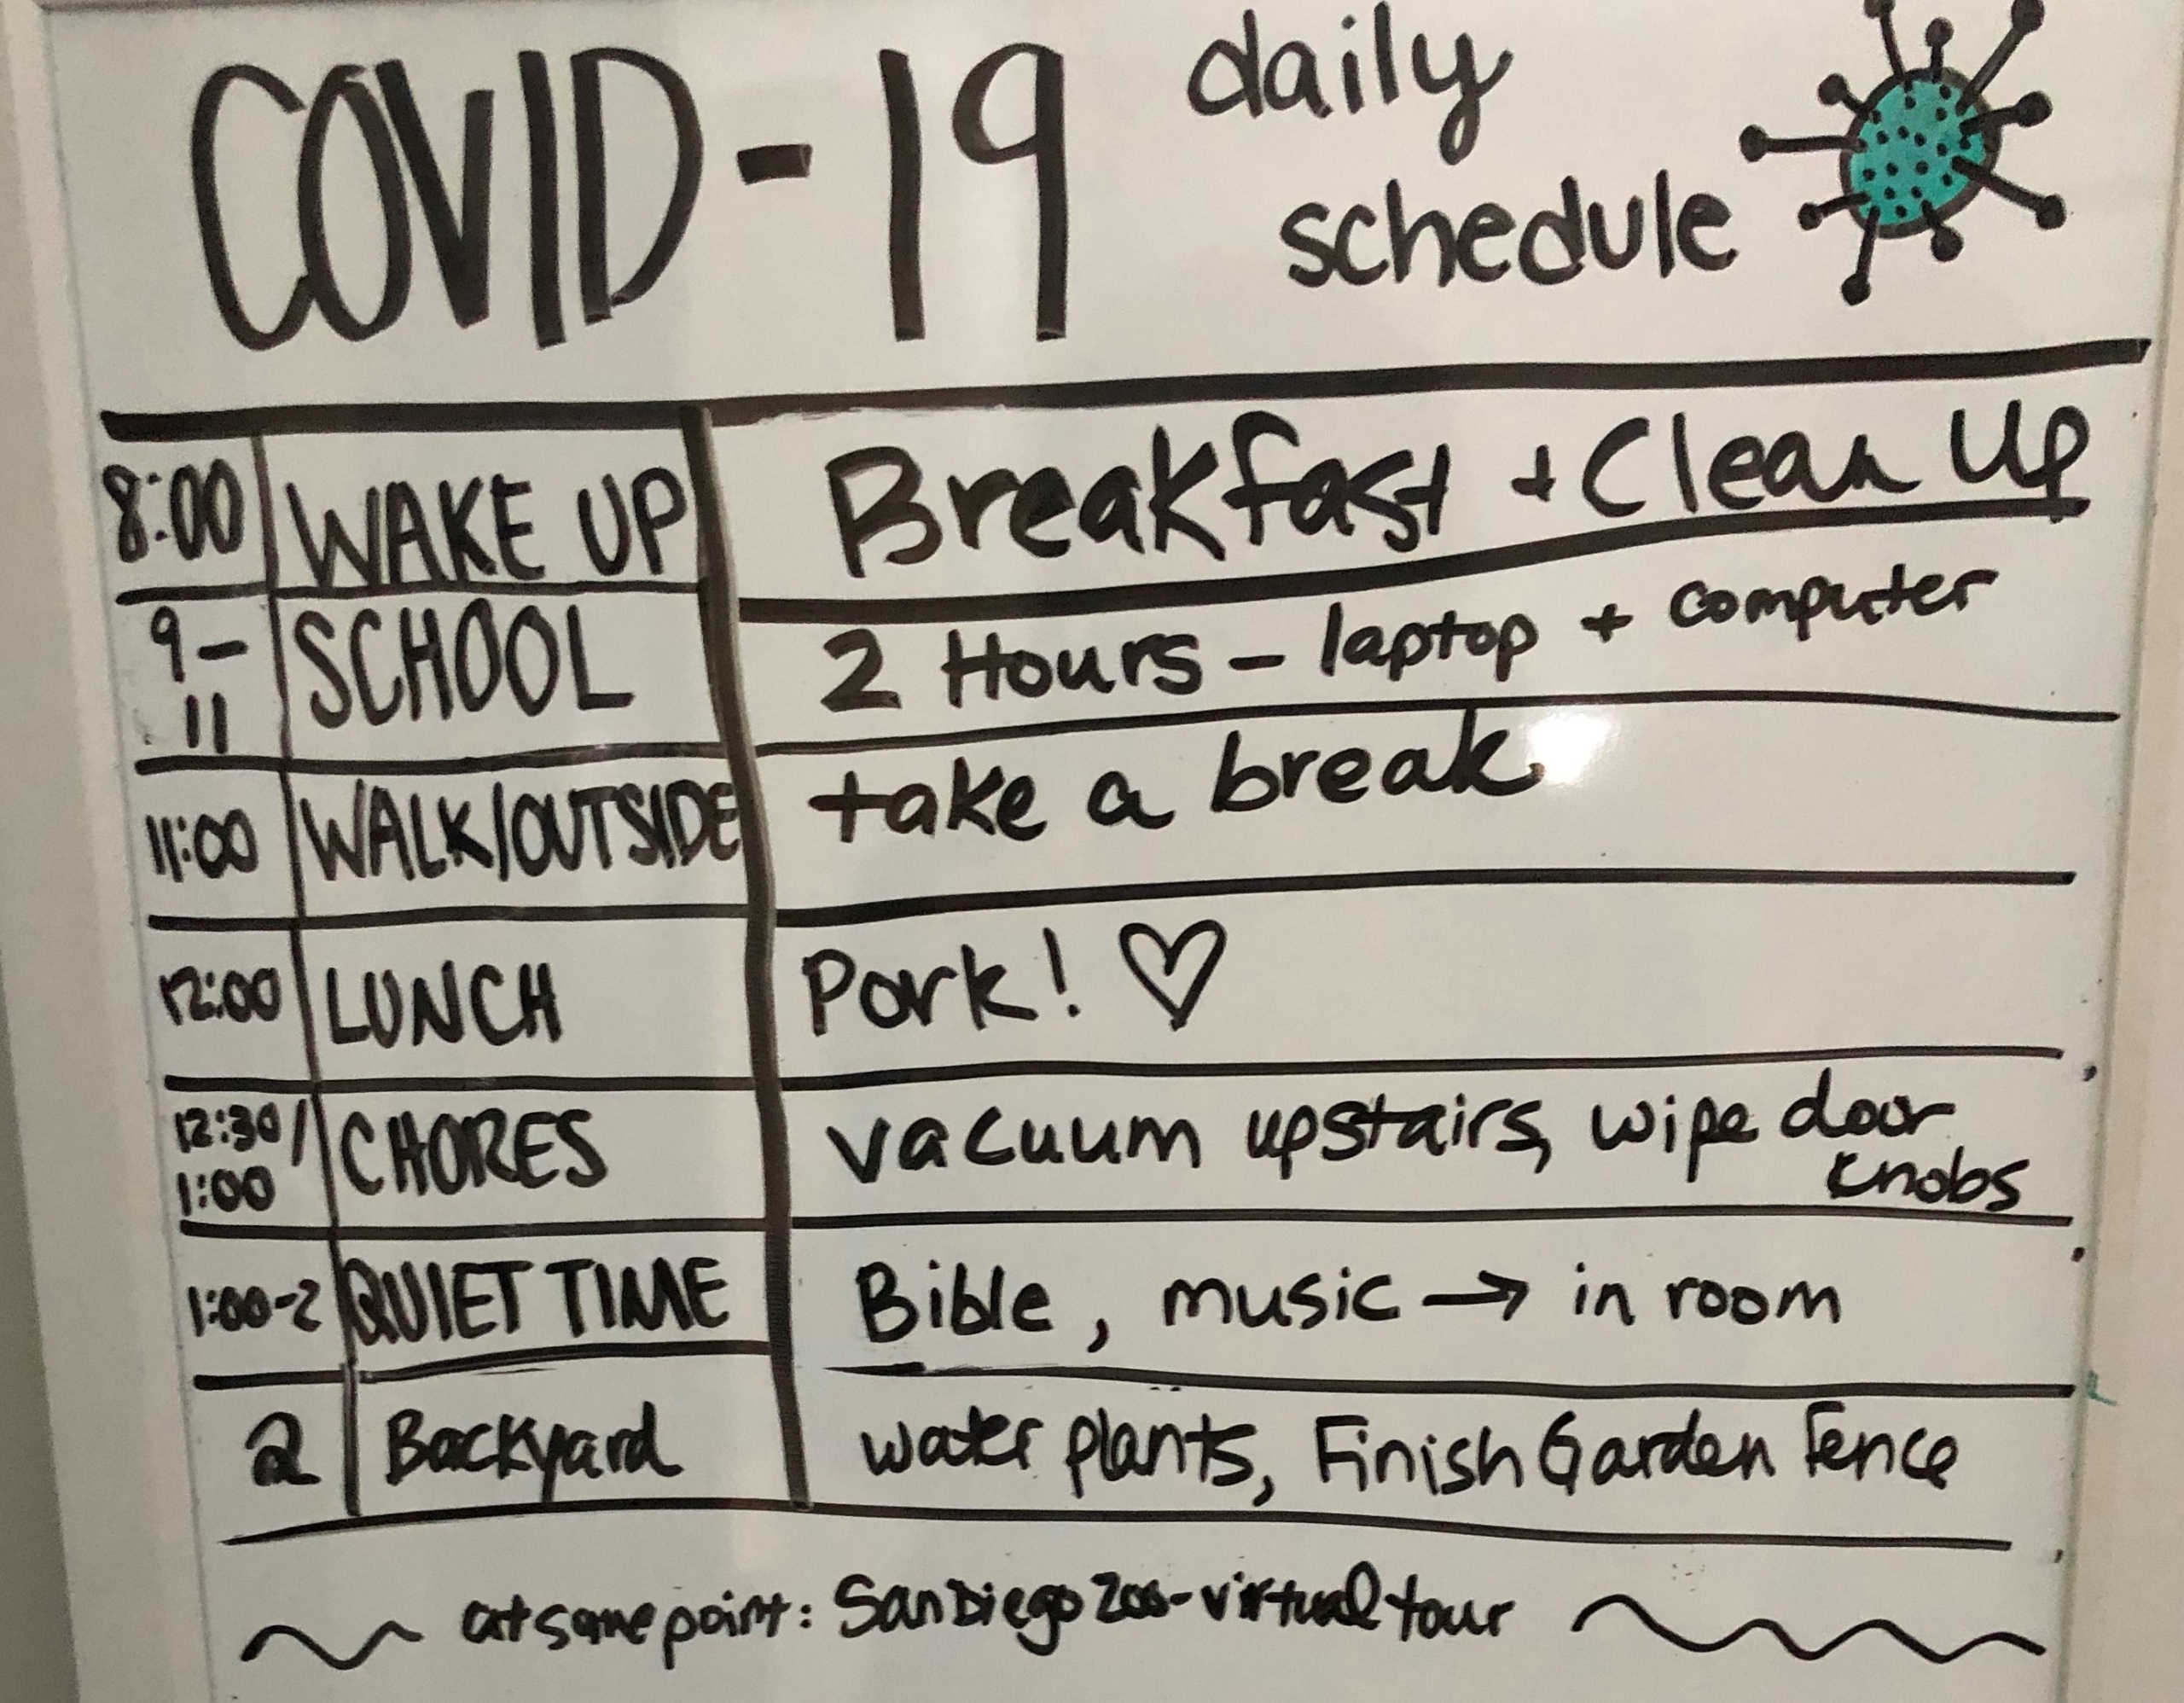 COVID-19 daily
schedule
8:00 WAKE UP Breakfast + Clean Up
9-
11 SCHOOL 2 Hours - laptop + computer
11:00 WALK/OUTSIDE take a break
12:00 LUNCH Pork! ♡
12:30/
1:00 CHORES vacuum upstairs, wipe door
knobs
1:00-2 QUIET TIME Bible, music → in room
2 Backyard water plants, Finish Garden Fence
at some point: San Diego Zoo-virtual tour